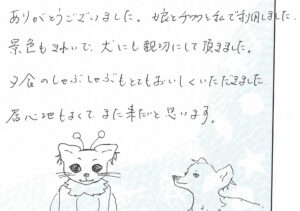 ありがとうございました。娘とチワワと私で利用しました。
景色もきれいで、犬にも親切にして頂きました。
夕食のしゃぶしゃぶもとてもおいしくいただきました。
居心地もよくて、また来たいと思います。